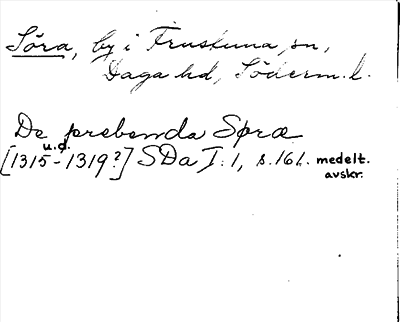 Söra, by i Frustuna sn,
Daga hd, Söderm. l.
De prebenda Spræ
u.d.
[1315-1319?] SDa I:1, s.161. medelt.
avskr.